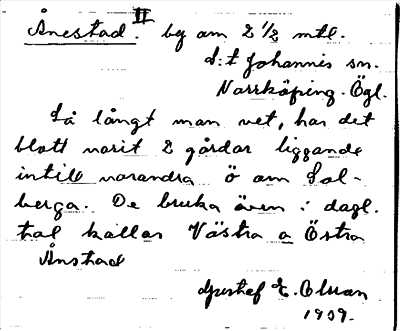 Ånestad. II by om 2 1/2 mtl.
S:t Johannis sn.
Norrköping. Ögl.
Så långt man vet, har det
blott varit 2 gårdar liggande
intill varandra ö om Sol-
berga. De bruka även i dagl.
tal kallas Västra o Östra
Ånstad
Gustaf E. Olsson
1939.